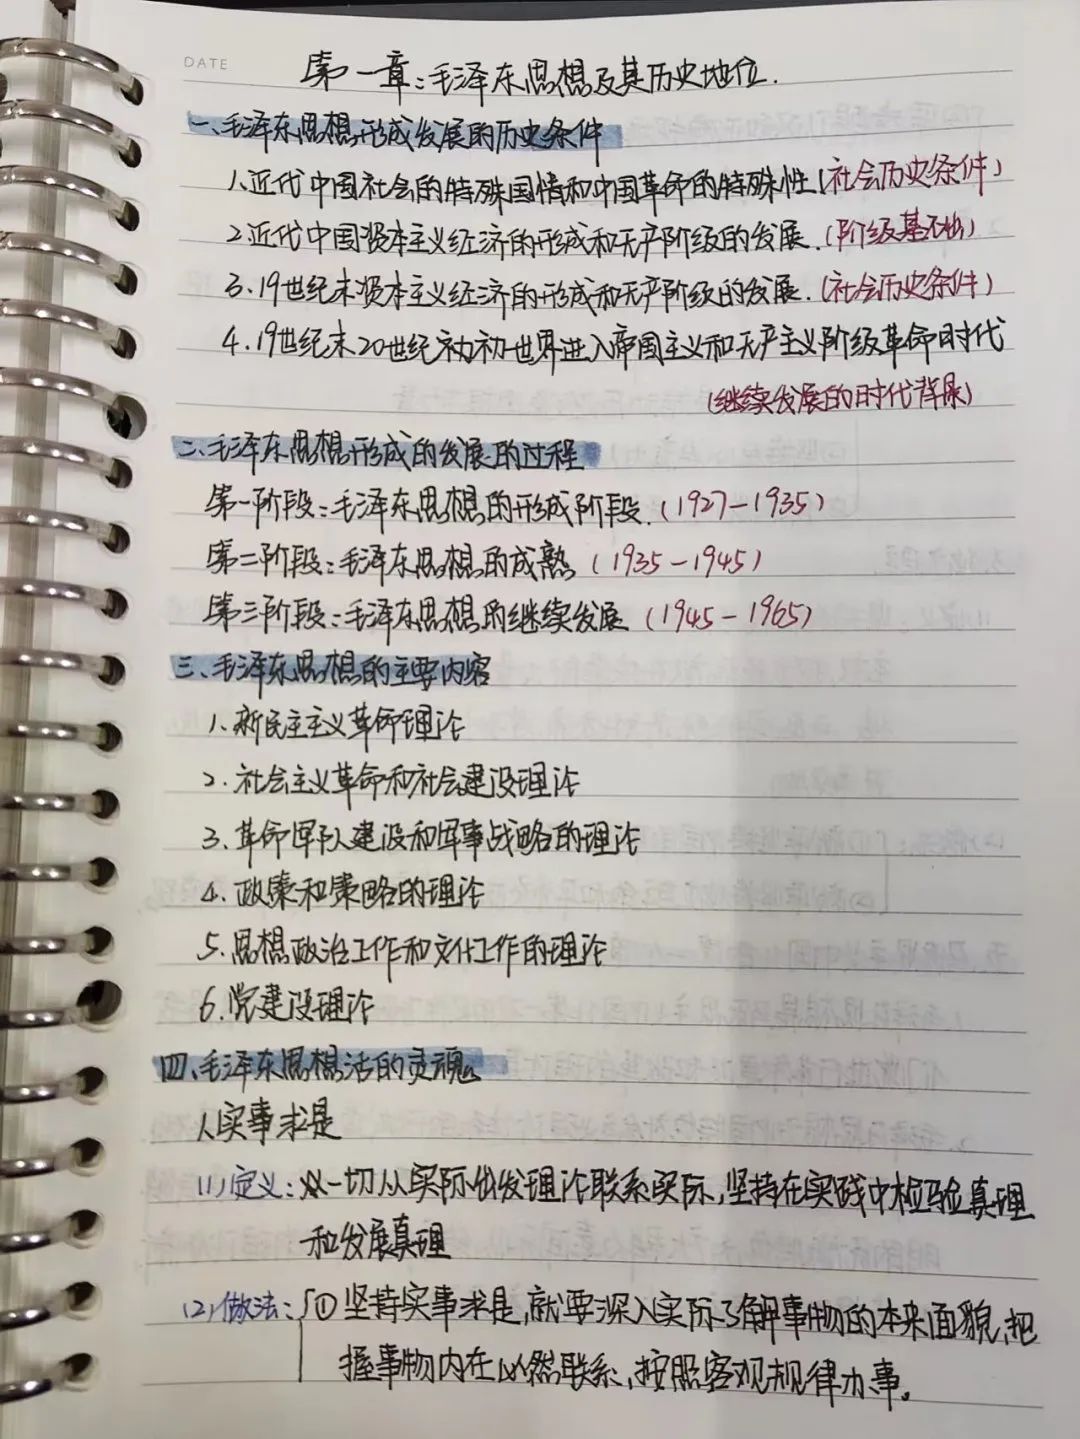 DATE
第一章:毛泽东思想及其历史地位.
一、毛泽东思想形成发展的历史条件
1.近代中国社会的特殊国情和中国革命的特殊性(社会历史条件)
2.近代中国资本主义经济的形成和无产阶级的发展.(阶级基础)
3.19世纪末资本主义经济的形成和无产阶级的发展.(社会历史条件)
4.19世纪末20世纪初初世界进入帝国主义和无产主义阶级革命时代
(继续发展的时代背景)
二、毛泽东思想形成的发展的过程
第一阶段:毛泽东思想的形成阶段.(1927-1935)
第二阶段:毛泽东思想的成熟(1935-1945)
第三阶段:毛泽东思想的继续发展(1945-1965)
三、毛泽东思想的主要内容
1.新民主主义革命理论
2.社会主义革命和社会建设理论
3.革命军队建设和军事战略的理论
4.政策和策略的理论
5.思想政治工作和文化工作的理论
6.党建设理论
四、毛泽东思想活的灵魂
1.实事求是
(1)定义:一切从实际出发理论联系实际,坚持在实践中检验真理
和发展真理
(2)做法:①坚持实事求是,就要深入实际了解事物的本来面貌,把
握事物内在必然联系,按照客观规律办事。